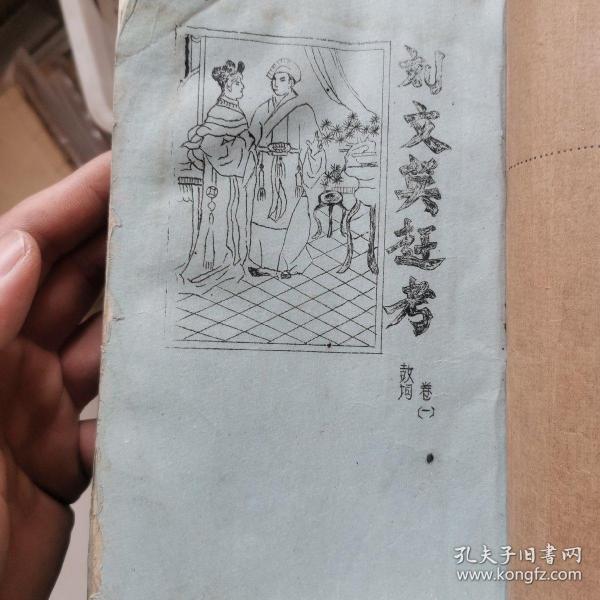 刘文英赶考
鼓词
卷〔一〕
孔夫子旧书网
www.kongfz.com